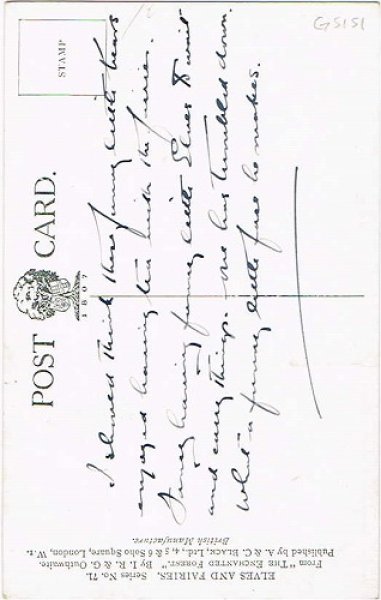 G5151
STAMP
POST CARD.
1807
I should think these funny little bears
enjoyed having tea with the fairies.
Fancy having funny little Elves to wait
and carry things. One has tumbled down.
What a funny little face he makes.
ELVES AND FAIRIES. Series No. 71.
From "THE ENCHANTED FOREST." By I. R. & G. Outhwaite.
Published by A. & C. BLACK, Ltd., 4, 5 & 6 Soho Square, London, W 1.
British Manufacture.